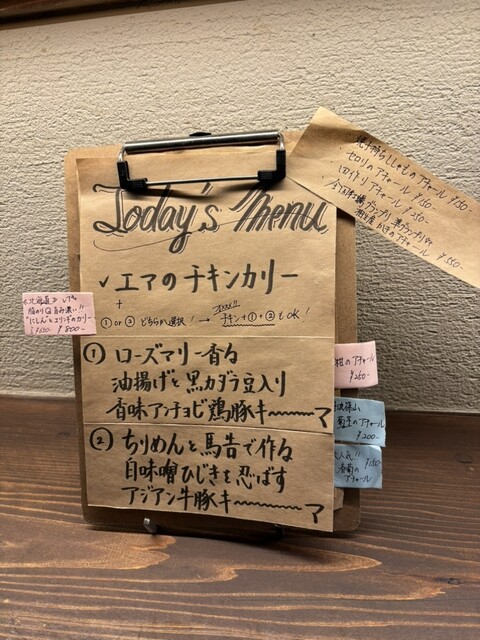 Today's Menu
✓エマのチキンカリー
+
① or ② どちらか選択! → チキン+①+②もOK!
① ローズマリー香る
油揚げと黒カダラ豆入り
香味アンチョビ鶏豚キ〜〜〜マ
② ちりめんと馬告で作る
自味噌ひじきを忍ばす
アジアン牛豚キ〜〜〜マ
・セロリのアチャール ¥150
のアチャール
¥550-
"にしん"とエリンギのカリー
¥800-
柑のアチャール
¥250-
のアチャール
¥200-
大人気!!
春菊の
アチャール